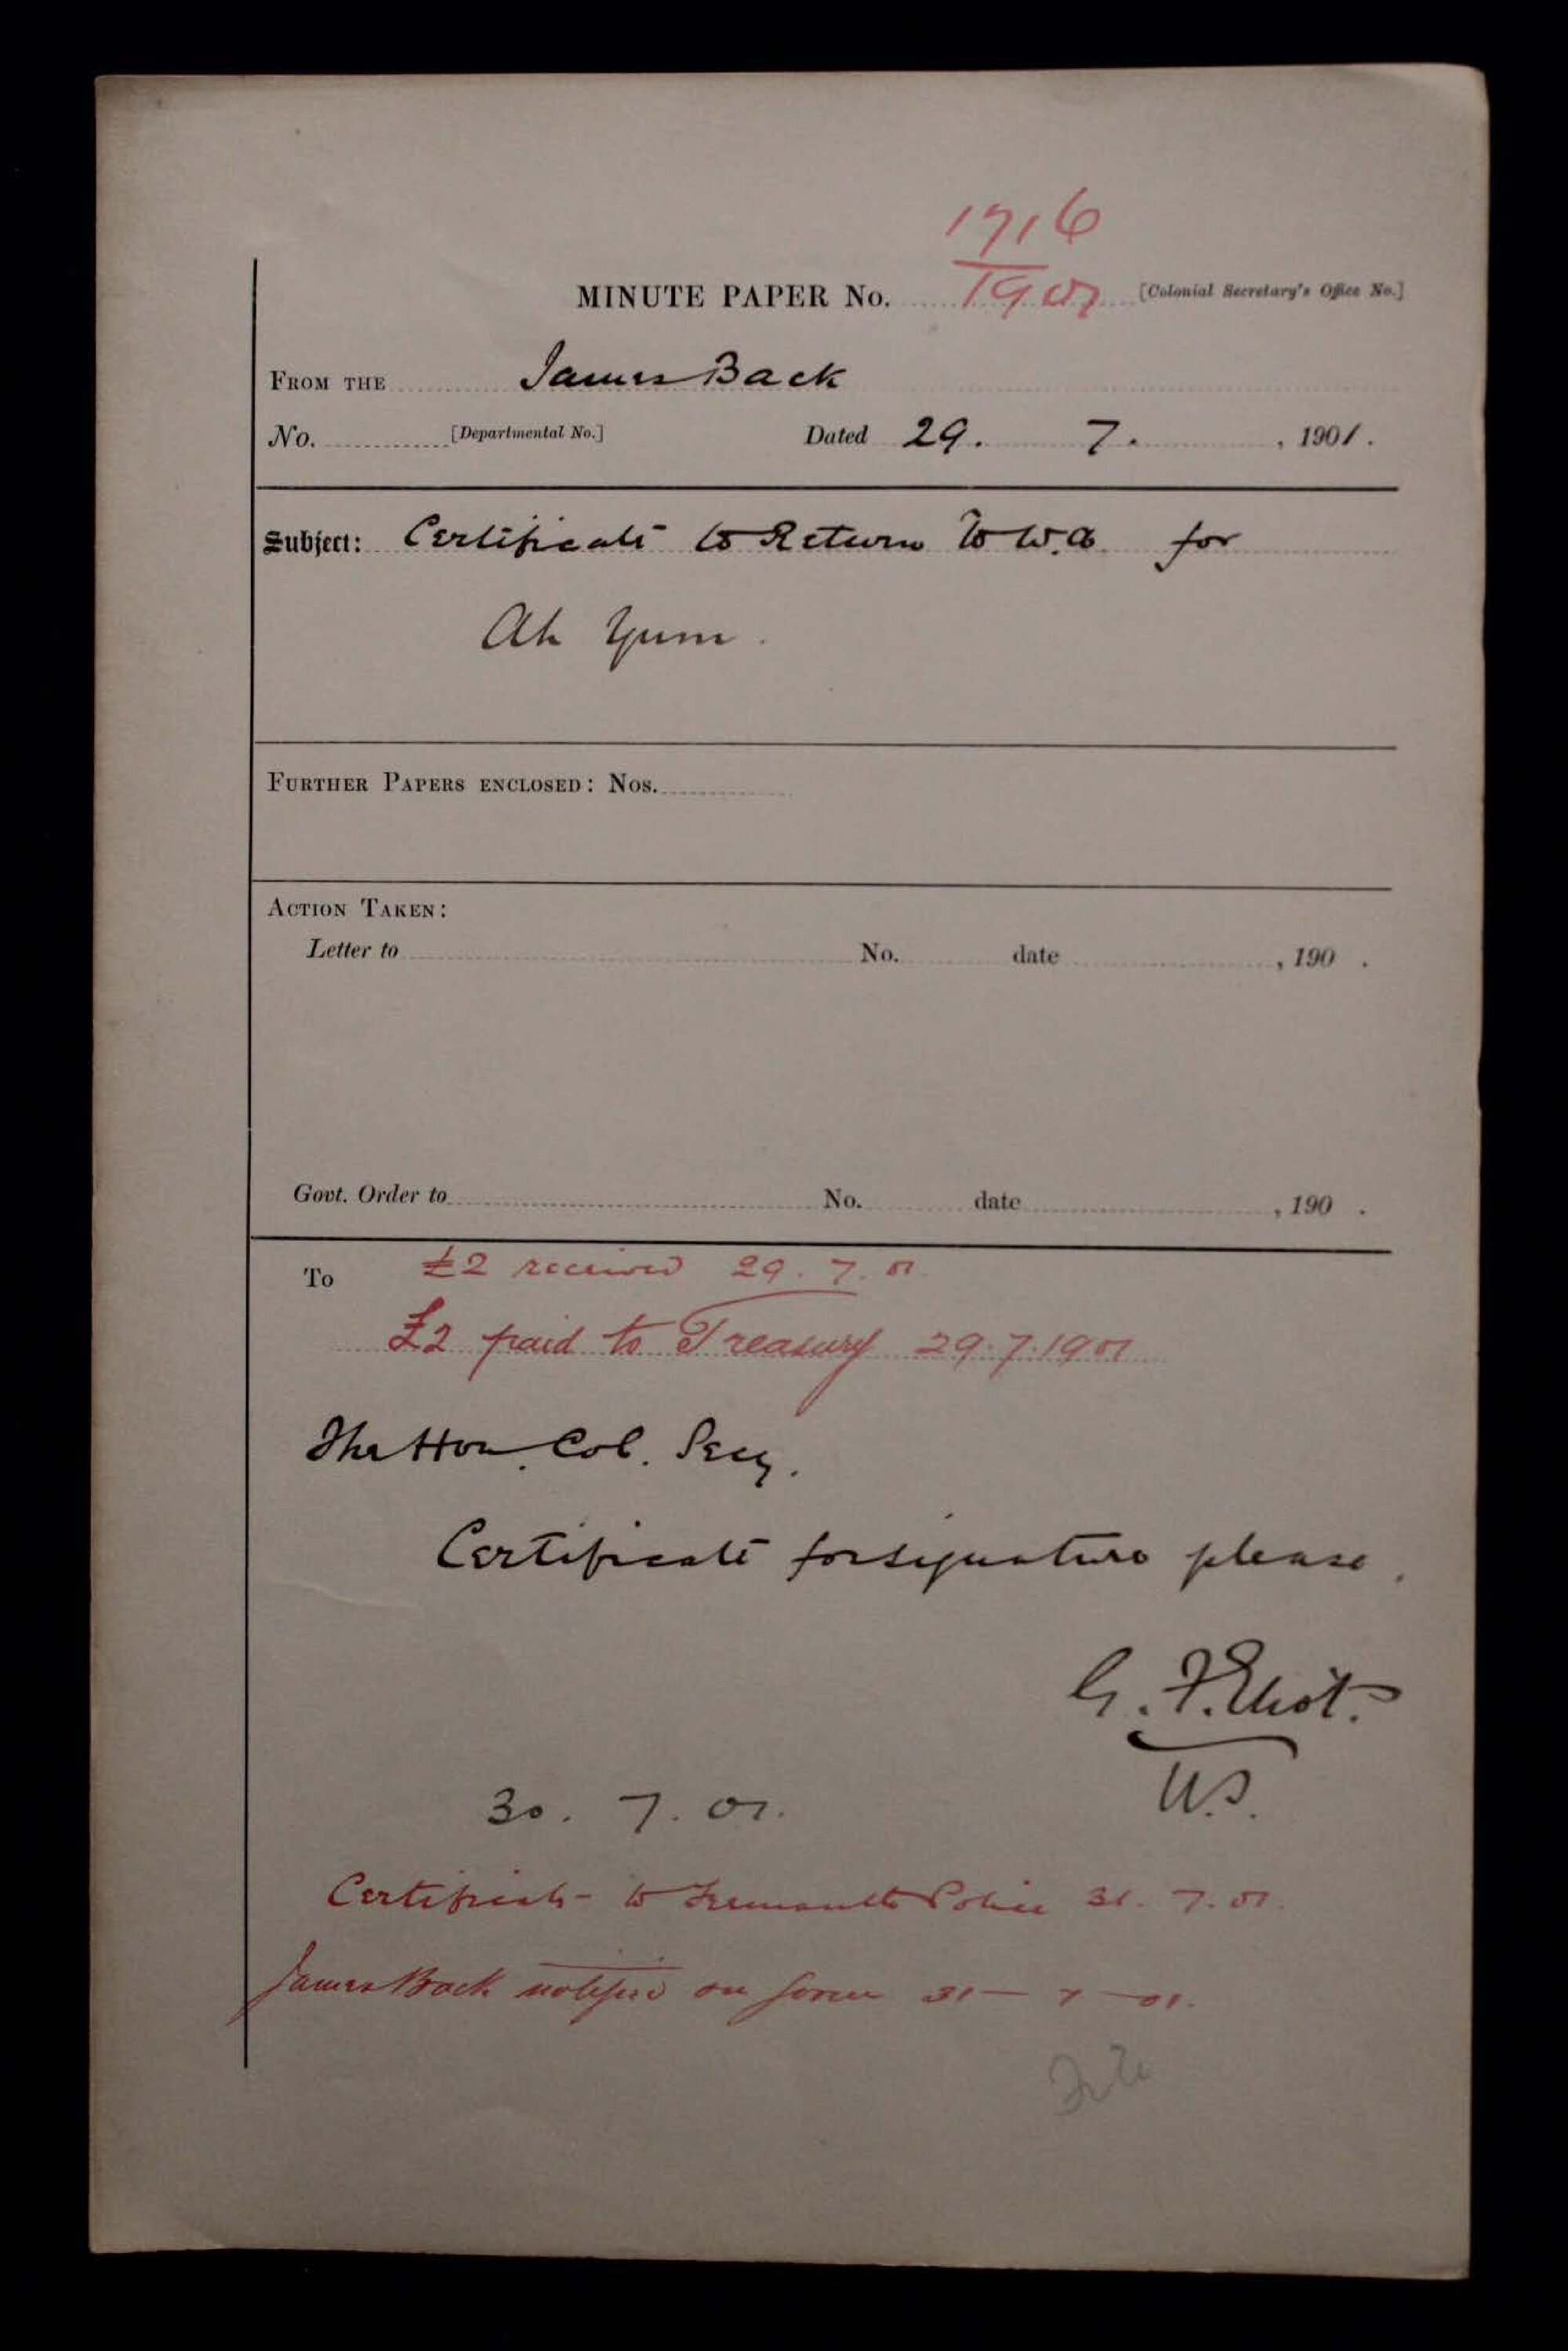 1716
MINUTE PAPER No. 1901 [Colonial Secretary's Office No.]
FROM THE James Back
No. [Departmental No.] Dated 29. 7. , 1901.
Subject: Certificate to Return to W.A. for
Ah Yum.
FURTHER PAPERS ENCLOSED: Nos.
ACTION TAKEN:
Letter to No. date , 190 .
Govt. Order to No. date , 190 .
To £2 received 29. 7. 01
£2 paid to Treasury 29.7.1901
The Hon. Col. Secy.
Certificate for signature please.
G. F. Eliot.
U.S.
30. 7. 01.
Certificate to Fremantle Police 31. 7. 01.
James Back notified on form 31 – 7 – 01.